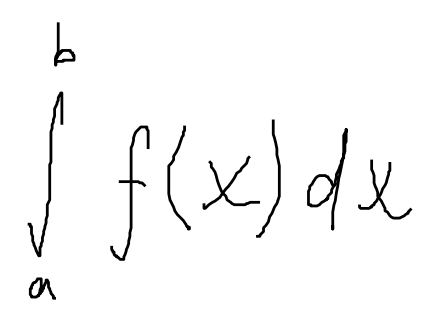 ∫_a^b f(x) dx